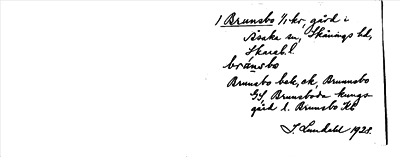 1 Brunsbo 1/1 kr, gård i
Åsaka sn, Skånings hd,
Skarab. l
brúnsbo
Brunsbo bek, ek, Brunnsbo
GS Brunsboda kungs-
gård l. Brunsbo KB
J. Lundahl 1921.